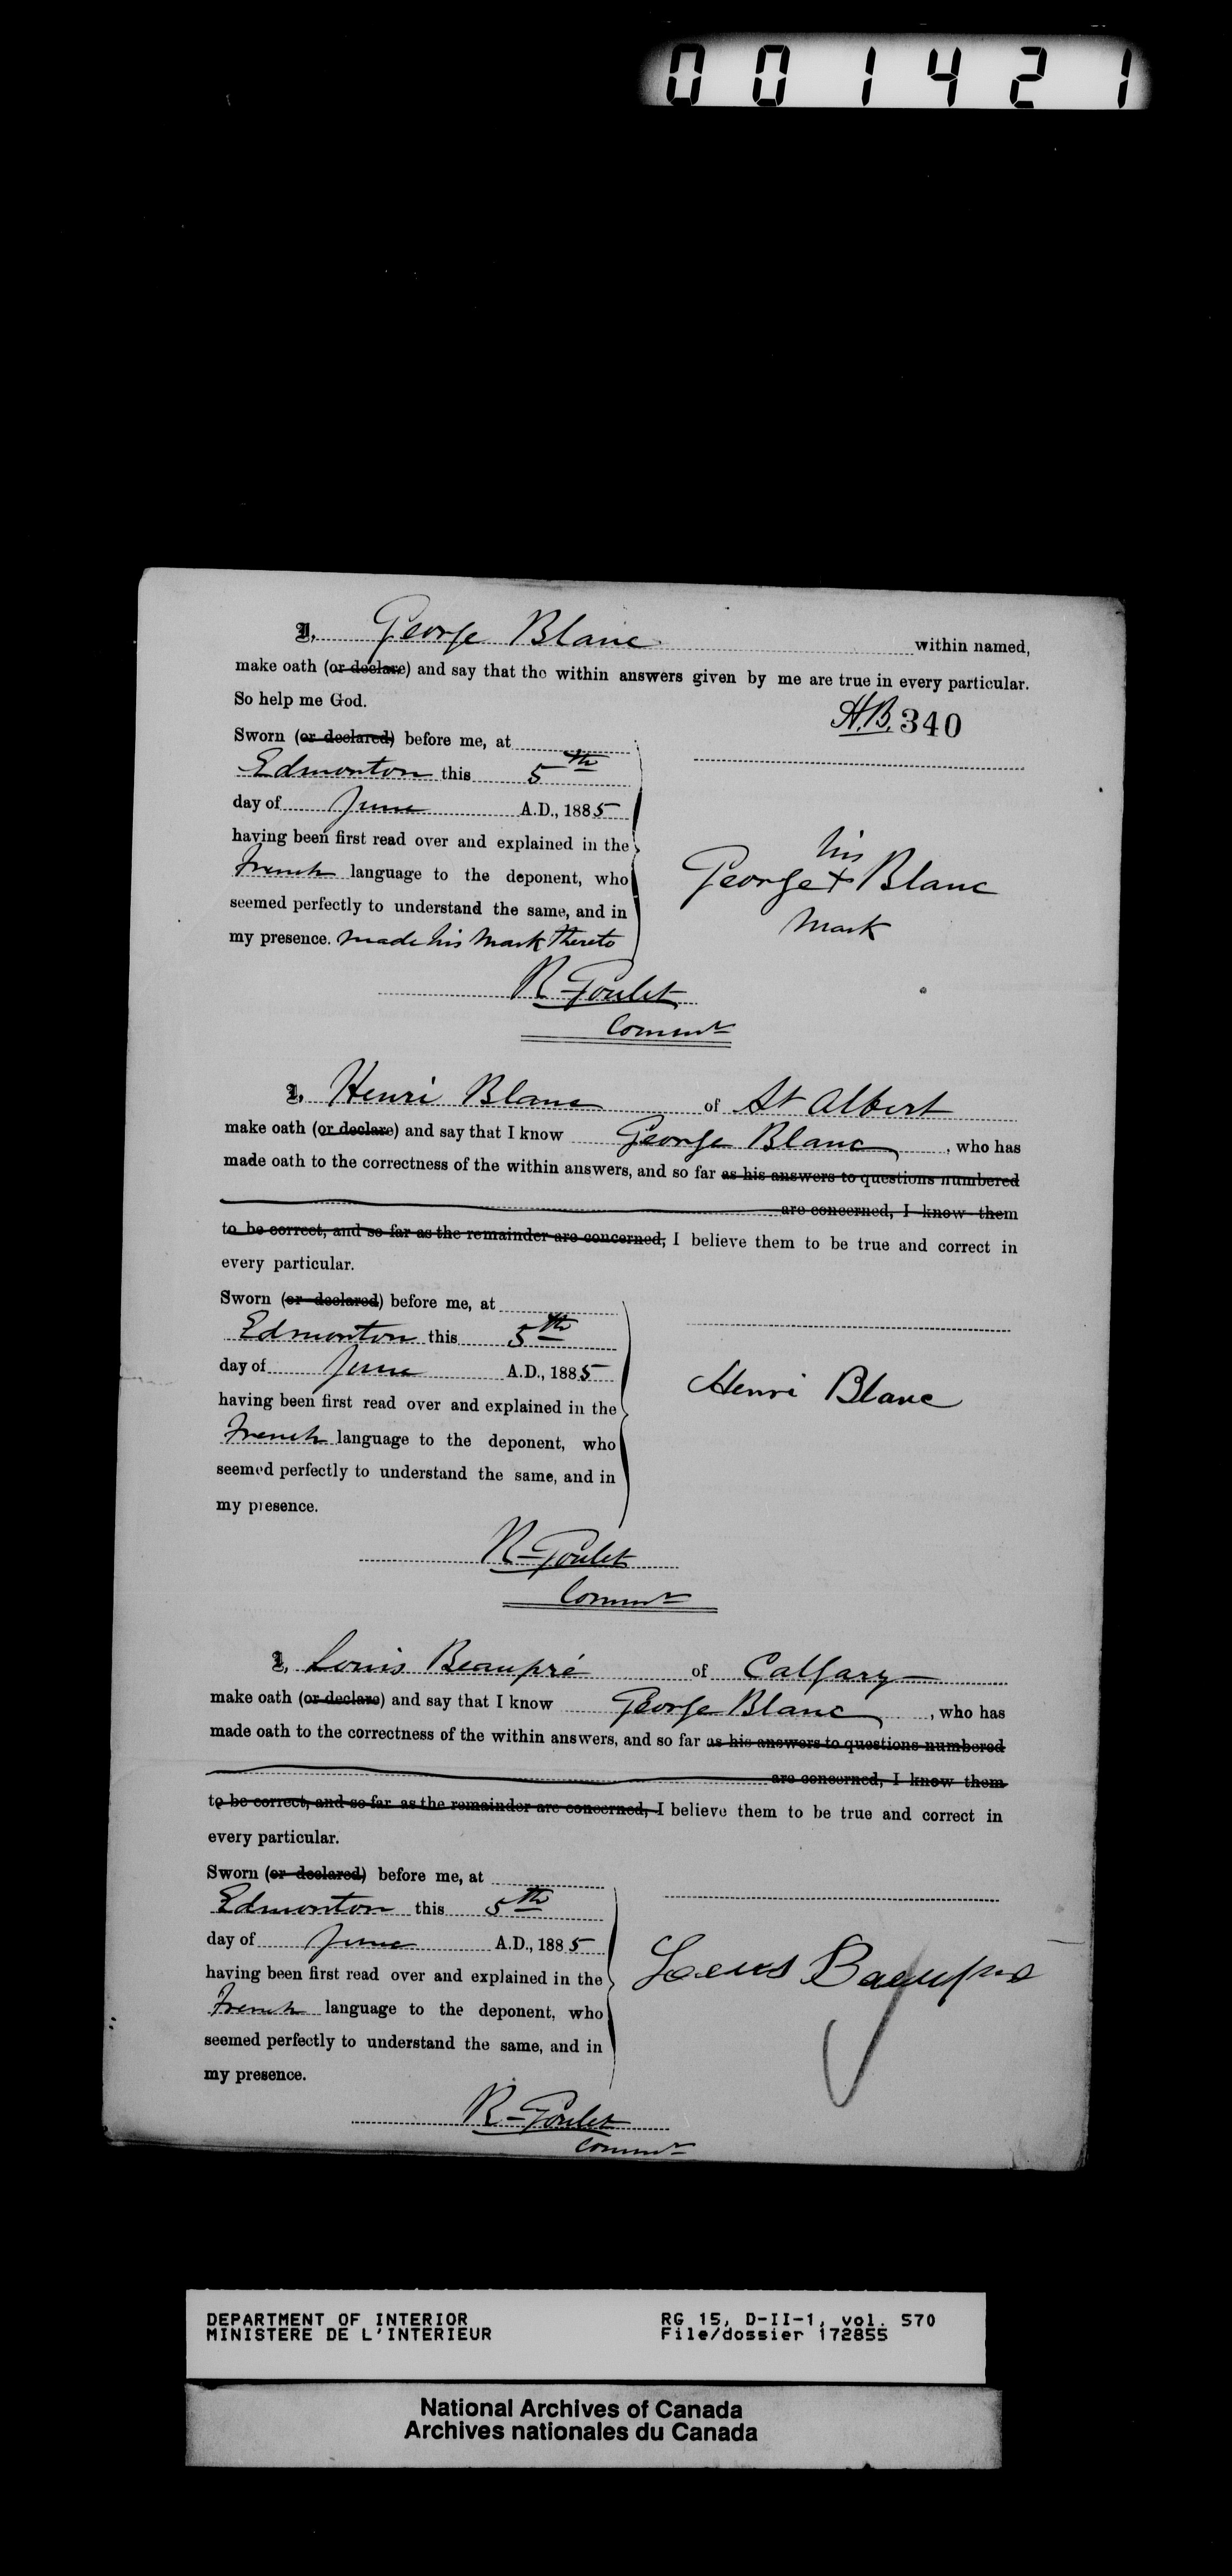 001421
I, George Blanc within named,
make oath (or declare) and say that the within answers given by me are true in every particular.
So help me God.
H.B. 340
Sworn (or declared) before me, at
Edmonton this 5th
day of June A.D., 1885
having been first read over and explained in the
French language to the deponent, who
seemed perfectly to understand the same, and in
my presence. made his mark thereto
his
George + Blanc
mark
R Goulet
Commr
I, Henri Blanc of St Albert
make oath (or declare) and say that I know George Blanc, who has
made oath to the correctness of the within answers, and so far as his answers to questions numbered
are concerned, I know them
to be correct, and so far as the remainder are concerned, I believe them to be true and correct in
every particular.
Sworn (or declared) before me, at
Edmonton this 5th
day of June A.D., 1885
having been first read over and explained in the
French language to the deponent, who
seemed perfectly to understand the same, and in
my presence.
Henri Blanc
R Goulet
Commr
I, Louis Beaupré of Calgary
make oath (or declare) and say that I know George Blanc, who has
made oath to the correctness of the within answers, and so far as his answers to questions numbered
are concerned, I know them
to be correct, and so far as the remainder are concerned, I believe them to be true and correct in
every particular.
Sworn (or declared) before me, at
Edmonton this 5th
day of June A.D., 1885
having been first read over and explained in the
French language to the deponent, who
seemed perfectly to understand the same, and in
my presence.
R Goulet
Commr
DEPARTMENT OF INTERIOR
MINISTERE DE L'INTERIEUR
RG 15, D-II-1, vol. 570
File/dossier 172855
National Archives of Canada
Archives nationales du Canada